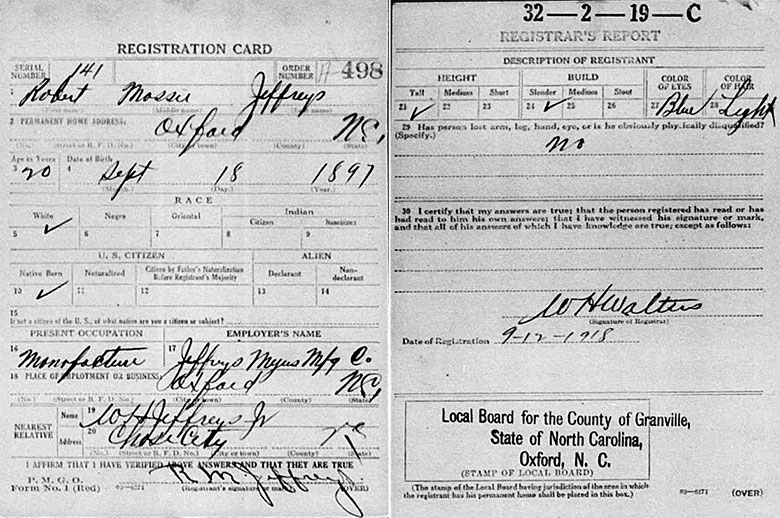 REGISTRATION CARD
SERIAL NUMBER 141 ORDER NUMBER A 498
1 Robert Mossie Jeffreys
2 PERMANENT HOME ADDRESS: Oxford NC,
(No.) (Street or R. F. D. No.) (City or town) (County) (State)
Age in Years Date of Birth
3 20 4 Sept 18 1897
(Month.) (Day.) (Year.)
RACE
White Negro Oriental Indian
Citizen Noncitizen
5 ✓ 6 7 8 9
U. S. CITIZEN ALIEN
Native Born Naturalized Citizen by Father's Naturalization Before Registrant's Majority Declarant Non-declarant
10 ✓ 11 12 13 14
15
If not a citizen of the U. S., of what nation are you a citizen or subject?
PRESENT OCCUPATION EMPLOYER'S NAME
16 Manofacture 17 Jeffreys Myers Mfg Co.
18 PLACE OF EMPLOYMENT OR BUSINESS: Oxford NC,
(No.) (Street or R. F. D. No.) (City or town) (County) (State)
NEAREST RELATIVE Name 19 W H Jeffreys Jr
Address 20 Chase City
(No.) (Street or R. F. D. No.) (City or town) (County) (State)
I AFFIRM THAT I HAVE VERIFIED ABOVE ANSWERS AND THAT THEY ARE TRUE
P. M. G. O.
Form No. 1 (Red) 03-6171 (Registrant's signature or mark) (OVER)
R M Jeffreys
32-2-19-C
REGISTRAR'S REPORT
DESCRIPTION OF REGISTRANT
HEIGHT BUILD COLOR OF EYES COLOR OF HAIR
Tall Medium Short Slender Medium Stout
21 ✓ 22 23 24 ✓ 25 26 27 Blue 28 Light
29 Has person lost arm, leg, hand, eye, or is he obviously physically disqualified?
(Specify.) no
30 I certify that my answers are true; that the person registered has read or has
had read to him his own answers; that I have witnessed his signature or mark,
and that all of his answers of which I have knowledge are true, except as follows:
W H Walters
(Signature of Registrar)
Date of Registration 9-12-1918
Local Board for the County of Granville,
State of North Carolina,
Oxford, N. C.
(STAMP OF LOCAL BOARD)
(The stamp of the Local Board having jurisdiction of the area in which
the registrant has his permanent home shall be placed in this box.)
03-6171 (OVER)